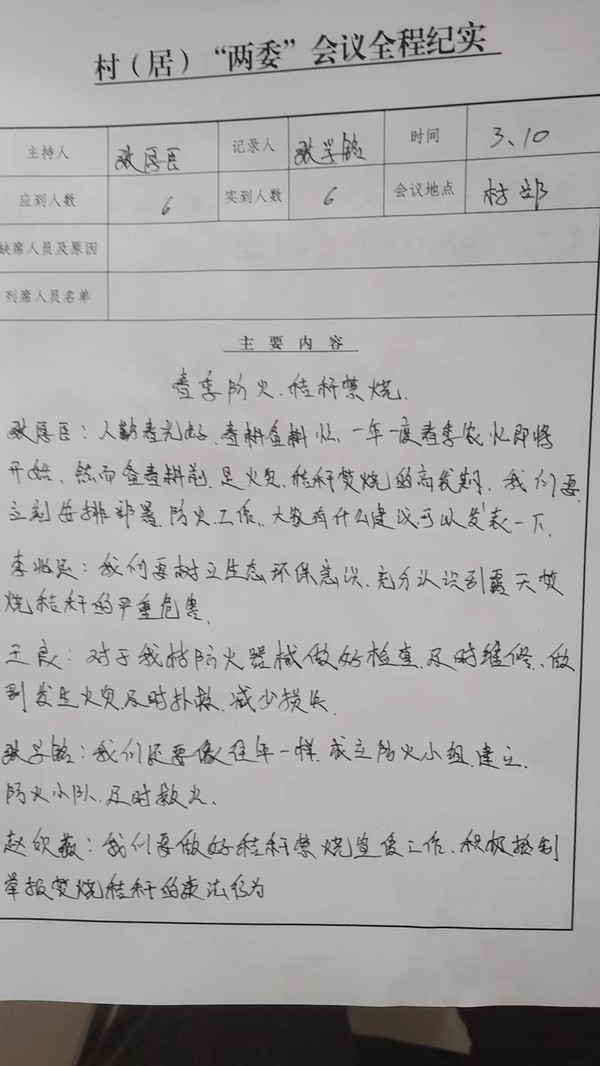 村（居）“两委”会议全程纪实
主持人 厚臣 记录人 学 时间 3.10
应到人数 6 实到人数 6 会议地点 村部
缺席人员及原因
列席人员名单
主要内容
春季防火、秸秆禁烧.
厚臣：人勤春光好，春耕备耕忙，一年一度春季农忙即将
开始、然而备春耕前，是火灾、秸秆焚烧的高发期，我们要
立刻安排部署，防火工作，大家有什么建议可以发表一下.
李：我们要树立生态环保意识、充分认识到露天焚
烧秸秆的严重危害.
王良：对于我村防火器械做好检查，及时维修、做
到发生火灾及时扑救，减少损失.
学：我们还要像往年一样，成立防火小组，建立
防火小队，及时救火.
赵欣薇：我们要做好秸秆禁烧宣传工作，积极抵制
举报焚烧秸秆的违法行为